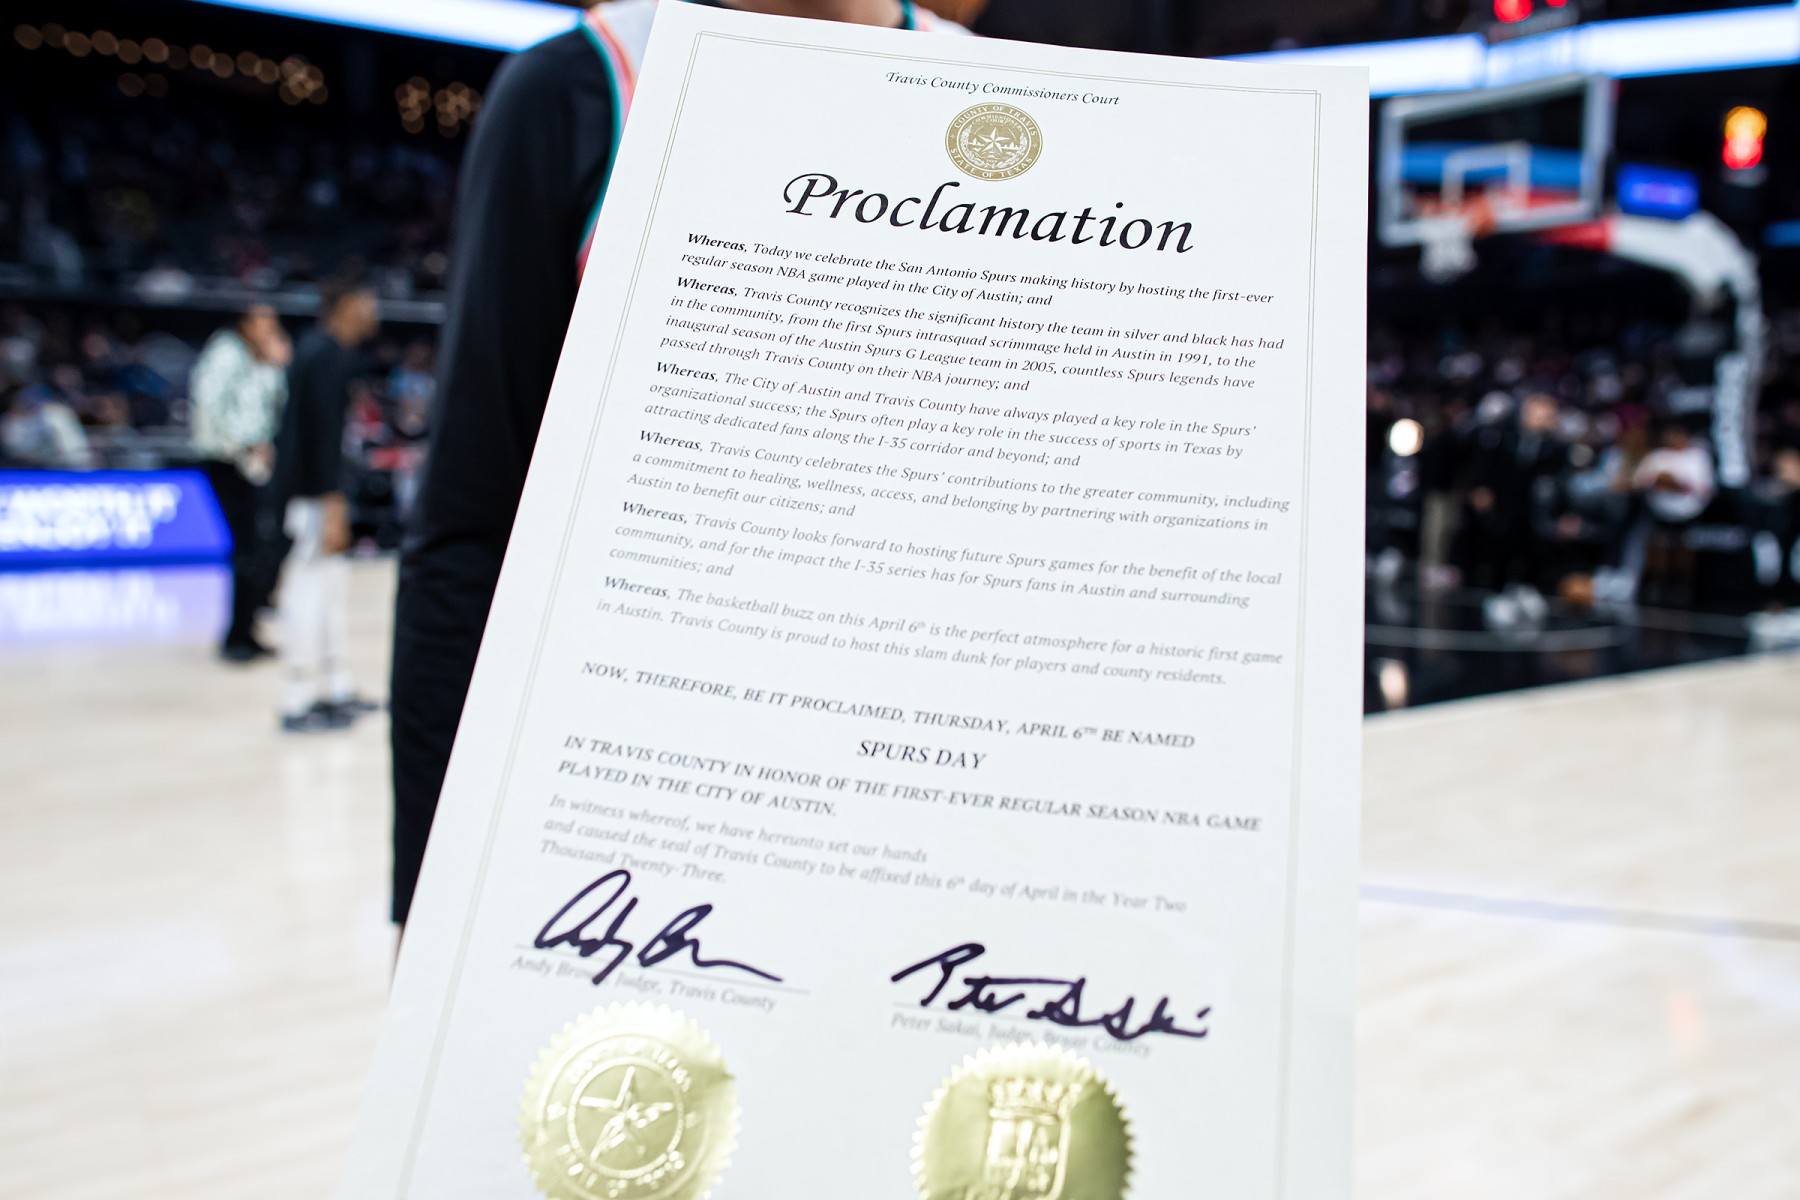 Travis County Commissioners Court
COUNTY OF TRAVIS
COMMISSIONERS
COURT
STATE OF TEXAS
Proclamation
Whereas, Today we celebrate the San Antonio Spurs making history by hosting the first-ever
regular season NBA game played in the City of Austin; and
Whereas, Travis County recognizes the significant history the team in silver and black has had
in the community, from the first Spurs intrasquad scrimmage held in Austin in 1991, to the
inaugural season of the Austin Spurs G League team in 2005, countless Spurs legends have
passed through Travis County on their NBA journey; and
Whereas, The City of Austin and Travis County have always played a key role in the Spurs'
organizational success; the Spurs often play a key role in the success of sports in Texas by
attracting dedicated fans along the I-35 corridor and beyond; and
Whereas, Travis County celebrates the Spurs' contributions to the greater community, including
a commitment to healing, wellness, access, and belonging by partnering with organizations in
Austin to benefit our citizens; and
Whereas, Travis County looks forward to hosting future Spurs games for the benefit of the local
community, and for the impact the I-35 series has for Spurs fans in Austin and surrounding
communities; and
Whereas, The basketball buzz on this April 6th is the perfect atmosphere for a historic first game
in Austin. Travis County is proud to host this slam dunk for players and county residents.
NOW, THEREFORE, BE IT PROCLAIMED, THURSDAY, APRIL 6TH BE NAMED
SPURS DAY
IN TRAVIS COUNTY IN HONOR OF THE FIRST-EVER REGULAR SEASON NBA GAME
PLAYED IN THE CITY OF AUSTIN.
In witness whereof, we have hereunto set our hands
and caused the seal of Travis County to be affixed this 6th day of April in the Year Two
Thousand Twenty-Three.
Andy Brown, Judge, Travis County
Peter Sakai
Peter Sakai, Judge, Bexar County